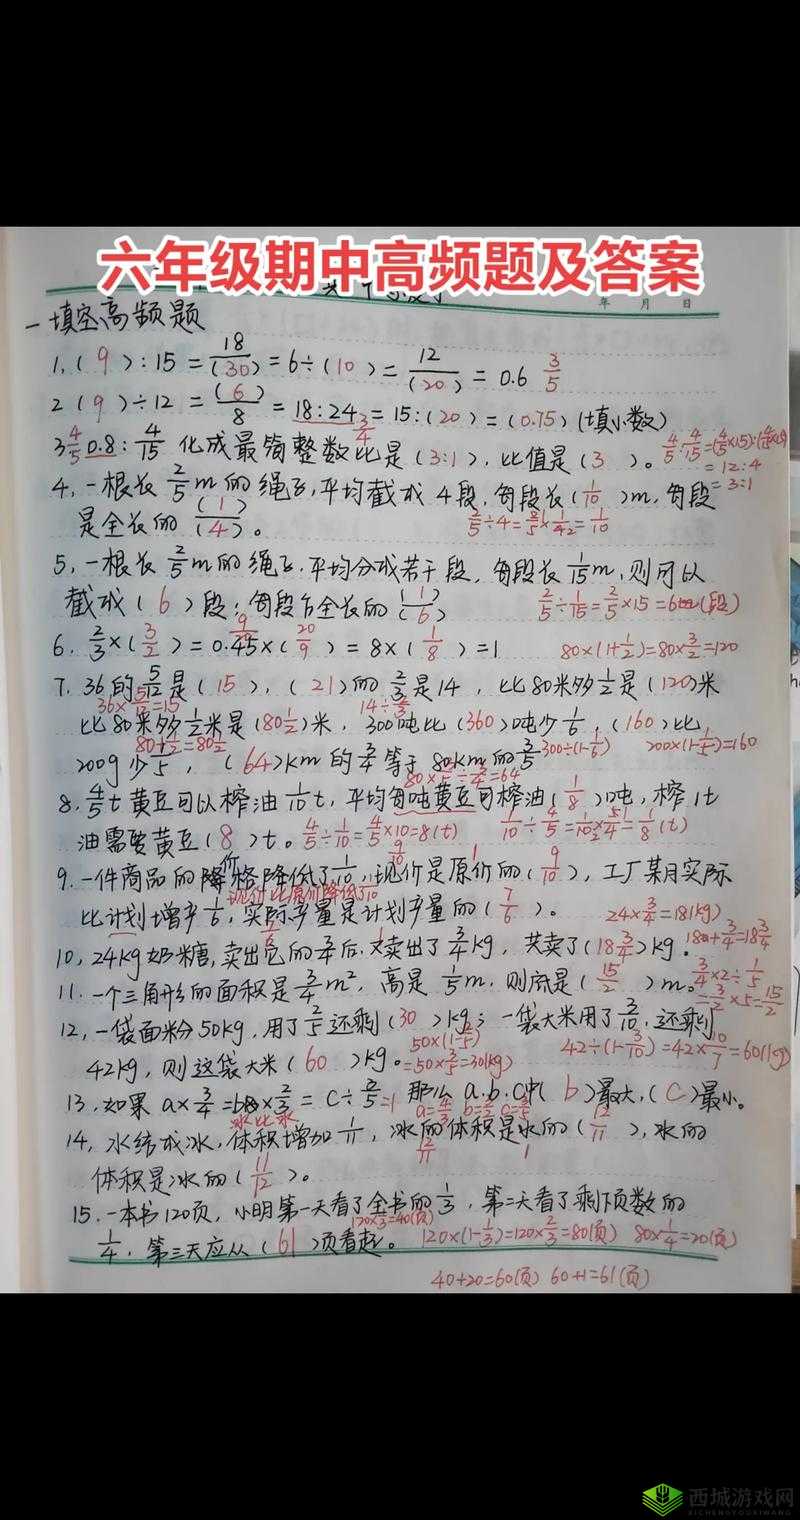 六年级期中高频题及答案
年 月 日
一填空高频题
1,( 9 ):15 = 18/(30) = 6÷(10) = 12/(20) = 0.6 3/5
2 (9)÷12 = (6)/8 = 18:24 = 15:(20) = (0.75) (填小数)
3/4
3 4/5 0.8: 4/15 化成最简整数比是(3:1),比值是(3 )。 4/5:4/15=(4/5×15):(4/15×15)
=12:4
=3:1
4,一根长 2/5 m的绳子,平均截成 4段,每段长(1/10)m,每段
是全长的 (1)/(4)。
5,一根长 2/5 m的绳子.平均分成若干段,每段长 1/15 m,则可以
截成(6)段;每段占全长的 (1)/(6) 2/5÷1/15=2/5×15=6(段)
6. 2/3×(3/2)=0.45×(20/9)=8×(1/8)=1 80×(1+1/2)=80×3/2=120
7. 36的 5/12 是(15),(21)的 2/3 是14,比80米多 1/2 是(120)米
36×5/12=15 14÷2/3
比80米多 1/2 米是(80 1/2)米, 300吨比(360)吨少 1/6,(160)比
80+1/2=80 1/2 300÷(1-1/6) 200×(1-1/5)=160
200g少 1/5,(64)km的 3/4 等于 80km的 3/5
80×3/5÷3/4=64
8. 4/5 t黄豆可以榨油 1/10 t,平均每吨黄豆可榨油(1/8)吨,榨1t
油需要黄豆(8)t。 4/5÷1/10=4/5×10=8(t) 1/10÷4/5=1/10×5/4=1/8(t)
9.一件商品的价格降低了 1/10,现价是原价的(9/10),工厂某月实际
现价比原价降低了1/10
比计划增产 1/6,实际产量是计划产量的(7/6)。 24×3/4=18(kg)
10, 24kg奶糖,卖出它的 3/4 后.又卖出了 3/4 kg,共卖了(18 3/4)kg。 18+3/4=18 3/4
11.一个三角形的面积是 3/4 m²,高是 1/5 m,则底是(15/2)m。 3/4×2÷1/5
=3/2×5=15/2
12,一袋面粉50kg,用了 2/5 还剩(30)kg; 一袋大米用了 3/10,还剩
50×(1-2/5)
42kg,则这袋大米(60)kg。 =50×3/5=30(kg) 42÷(1-3/10)=42×10/7=60(kg)
13.如果 a×3/4=b×2/3=c÷3/5=1 那么 a.b.c中(b)最大,(c)最小。
冰比水 a=4/3 b=3/2 c=3/5
14,水结成冰,体积增加 1/11,冰的体积是水的(12/11),水的
体积是冰的(11/12)。
15.一本书120页,小明第一天看了全书的 1/3,第二天看了剩下页数的
120×1/3=40(页)
1/4,第三天应从(61)页看起。 120×(1-1/3)=120×2/3=80(页) 80×1/4=20(页)
40+20=60(页) 60+1=61(页)
西城游戏网
XICHENGYOUXIWANG